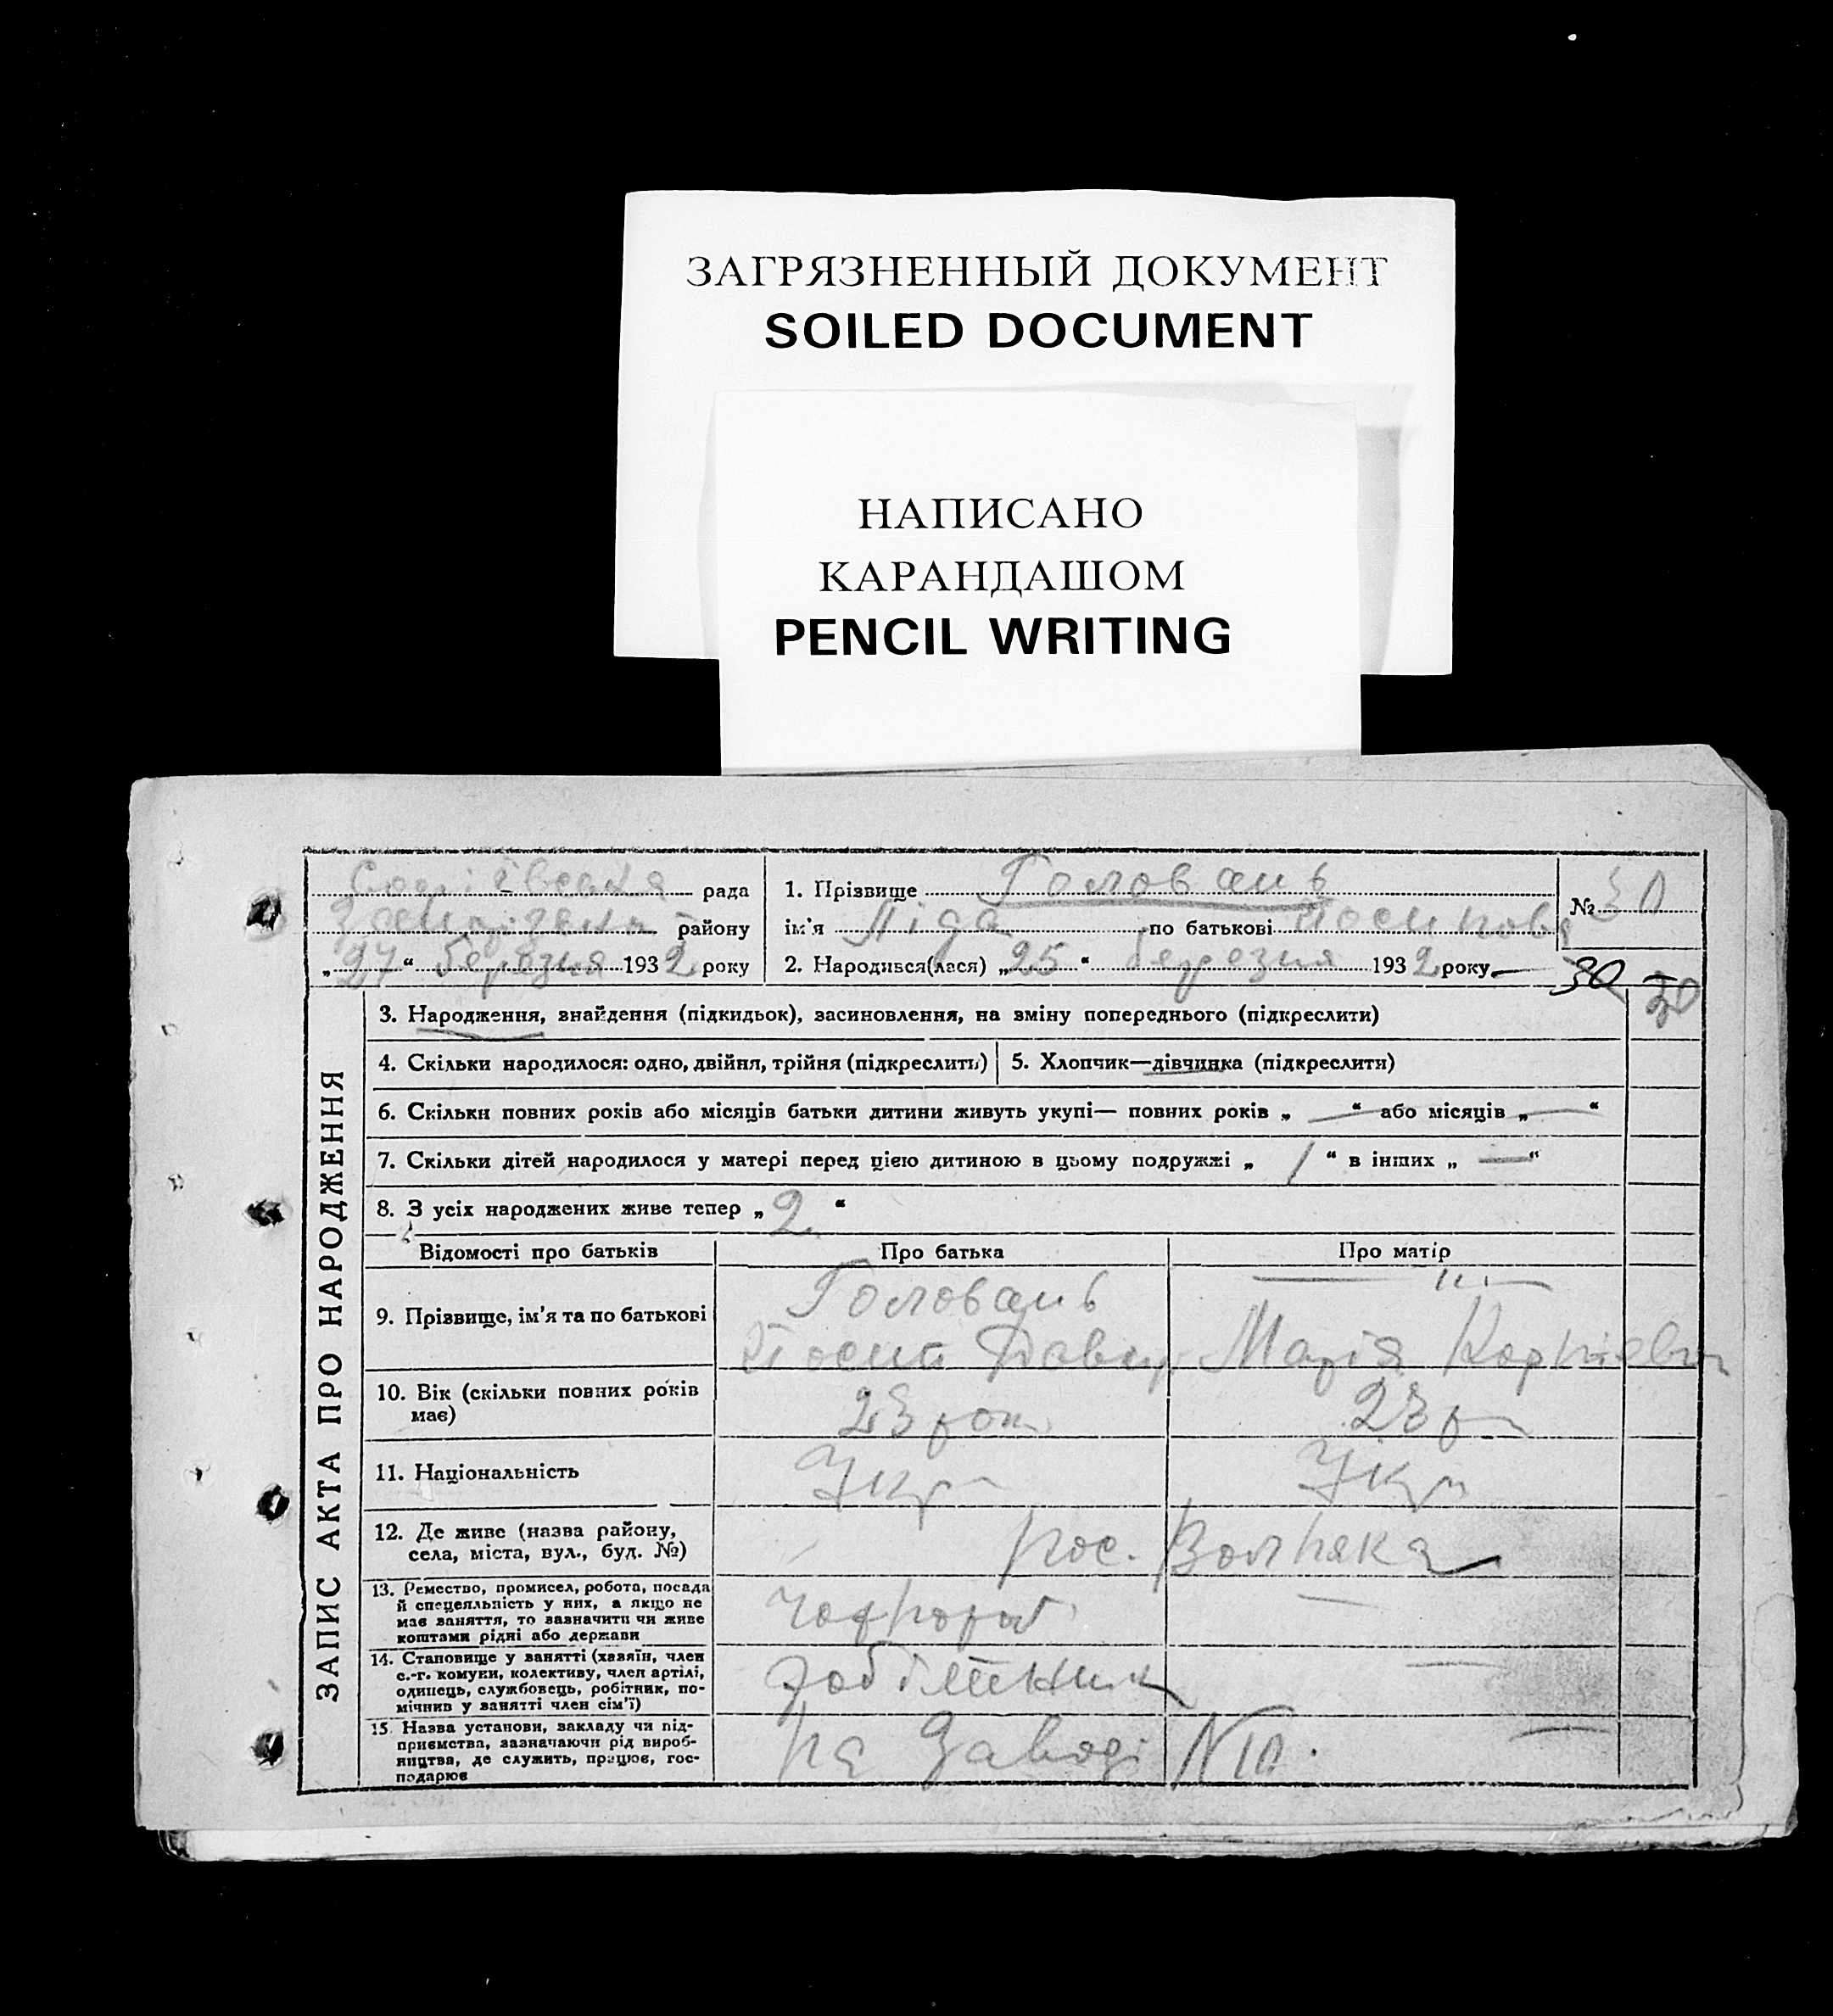 ЗАГРЯЗНЕННЫЙ ДОКУМЕНТ
SOILED DOCUMENT
НАПИСАНО
КАРАНДАШОМ
PENCIL WRITING
рада
району
„27“ березня 1932 року
1. Прізвище Головань
ім'я Ліда по батькові Йосипова
2. Народився(лася) „25“ березня 1932 року
№ 30
30 30
ЗАПИС АКТА ПРО НАРОДЖЕННЯ
3. Народження, знайдення (підкидьок), засиновлення, на зміну попереднього (підкреслити)
4. Скільки народилося: одно, двійня, трійня (підкреслить)
5. Хлопчик—дівчинка (підкреслити)
6. Скільки повних років або місяців батьки дитини живуть укупі— повних років „ — “ або місяців „ — “
7. Скільки дітей народилося у матері перед цією дитиною в цьому подружжі „ 1 “ в інших „ — “
8. З усіх народжених живе тепер „ 2 “
Відомості про батьків
Про батька
Про матір
9. Прізвище, ім'я та по батькові
Головань
Йосип Давид
— " —
Марія
10. Вік (скільки повних років
має)
23 рок
23 р
11. Національність
Укр
Укр
12. Де живе (назва району,
села, міста, вул., буд. №)
пос.
13. Ремество, промисел, робота, посада
й спеціяльність у них, а якщо не
має заняття, то зазначити чи живе
коштами рідні або держави
—
14. Становище у занятті (хазяїн, член
с.-г. комуни, колективу, член артілі,
одинець, службовець, робітник, по-
мічник у занятті член сім'ї)
робітник
—
15. Назва установи, закладу чи під-
приємства, зазначаючи рід вироб-
ництва, де служить, працює, гос-
подарює
на Заводі N 10.
—